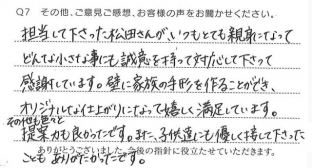 Q7 その他、ご意見ご感想、お客様の声をお聞かせください。
担当して下さった松田さんが、いつもとても親身になって
どんな小さな事にも誠意を持って対応して下さって
感謝しています。壁に家族の手形を作ることができ、
オリジナルな仕上がりになって嬉しく満足しています。
その他も色々と
提案力も良かったです。また、子供達にも優しく接して下さった
ありがとうございました。今後の指針に役立たせていただきます。
こともありがたかったです。